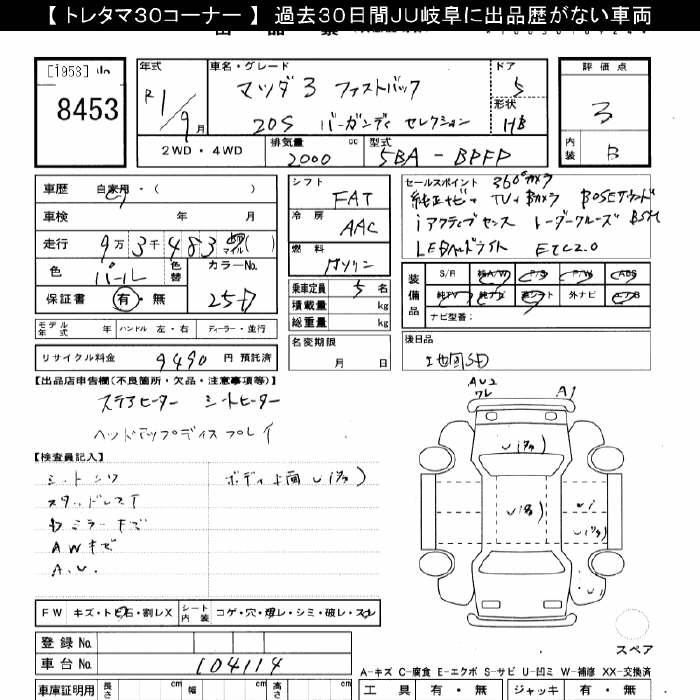 【 トレタマ30コーナー 】 過去30日間JU岐阜に出品歴がない車両
[1953]
8453
年式
R1/9月
車名・グレード
マツダ3 ファストバック
20S バーガンディ セレクション
ドア
5
形状
HB
評価点
3
内装
B
2WD・4WD
排気量
2000 cc
型式
5BA-BPFP
車歴 自家用・( )
車検 年 月
走行 9万3千483 マイル( )
色 パール
色替
カラーNo.
25D
保証書 有・無
シフト
FAT
冷房
AAC
燃料
ガソリン
乗車定員 5名
積載量 kg
総重量 kg
セールスポイント 360°カメラ
純正ナビ TV Bカメラ BOSEサウンド
iアクティブセンス レーダークルーズ BSM
LEDヘッドライト ETC2.0
装備品
S/R 純A/W P/S P/W ABS
純TV 純ナビ 革シート 外ナビ エアB
ナビ型番:
モデル年式 年
ハンドル 左・右
ディーラー・並行
リサイクル料金 9490 円 預託済
名変期限
月 日
後日品
地図SD
【出品店申告欄(不良箇所・欠品・注意事項等)】
ステアヒーター シートヒーター
ヘッドアップディスプレイ
【検査員記入】
シートシワ
ボディ上面 U(ヒョウ)
スタッドレス
ドアミラーキズ
AWキズ
A.U.
AU2
ワレ
A1
FW キズ・トビ石・割レX
シート内装 コゲ・穴・切レ・シミ・破レ・スレ
登録 No.
車台 No. 104114
スペア
A-キズ C-腐食 E-エクボ S-サビ U-凹ミ W-補修 XX-交換済
車庫証明用 長さ cm 幅 cm 高さ cm
工具 有・無 ジャッキ 有・無